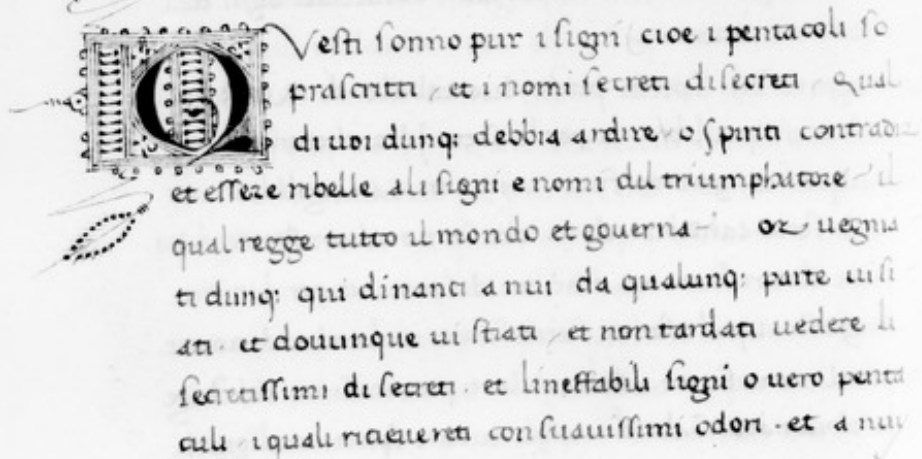 Questi sonno pur i signi cioe i pentacoli so
prascritti et i nomi secreti disecreti Qual
di uoi dunq: debbia ardire o spiriti contradi
et essere ribelle ali signi e nomi dil triumphatore il
qual regge tutto il mondo et governa or uegnia
ti dunq: qui dinanci a nui da qualunq: parte ui si
ati et douunque ui stiati et non tardati uedere li
secretissimi di secreti et lineffabili signi o uero penta
culi i quali ricievereti con suauissimi odori et a nui